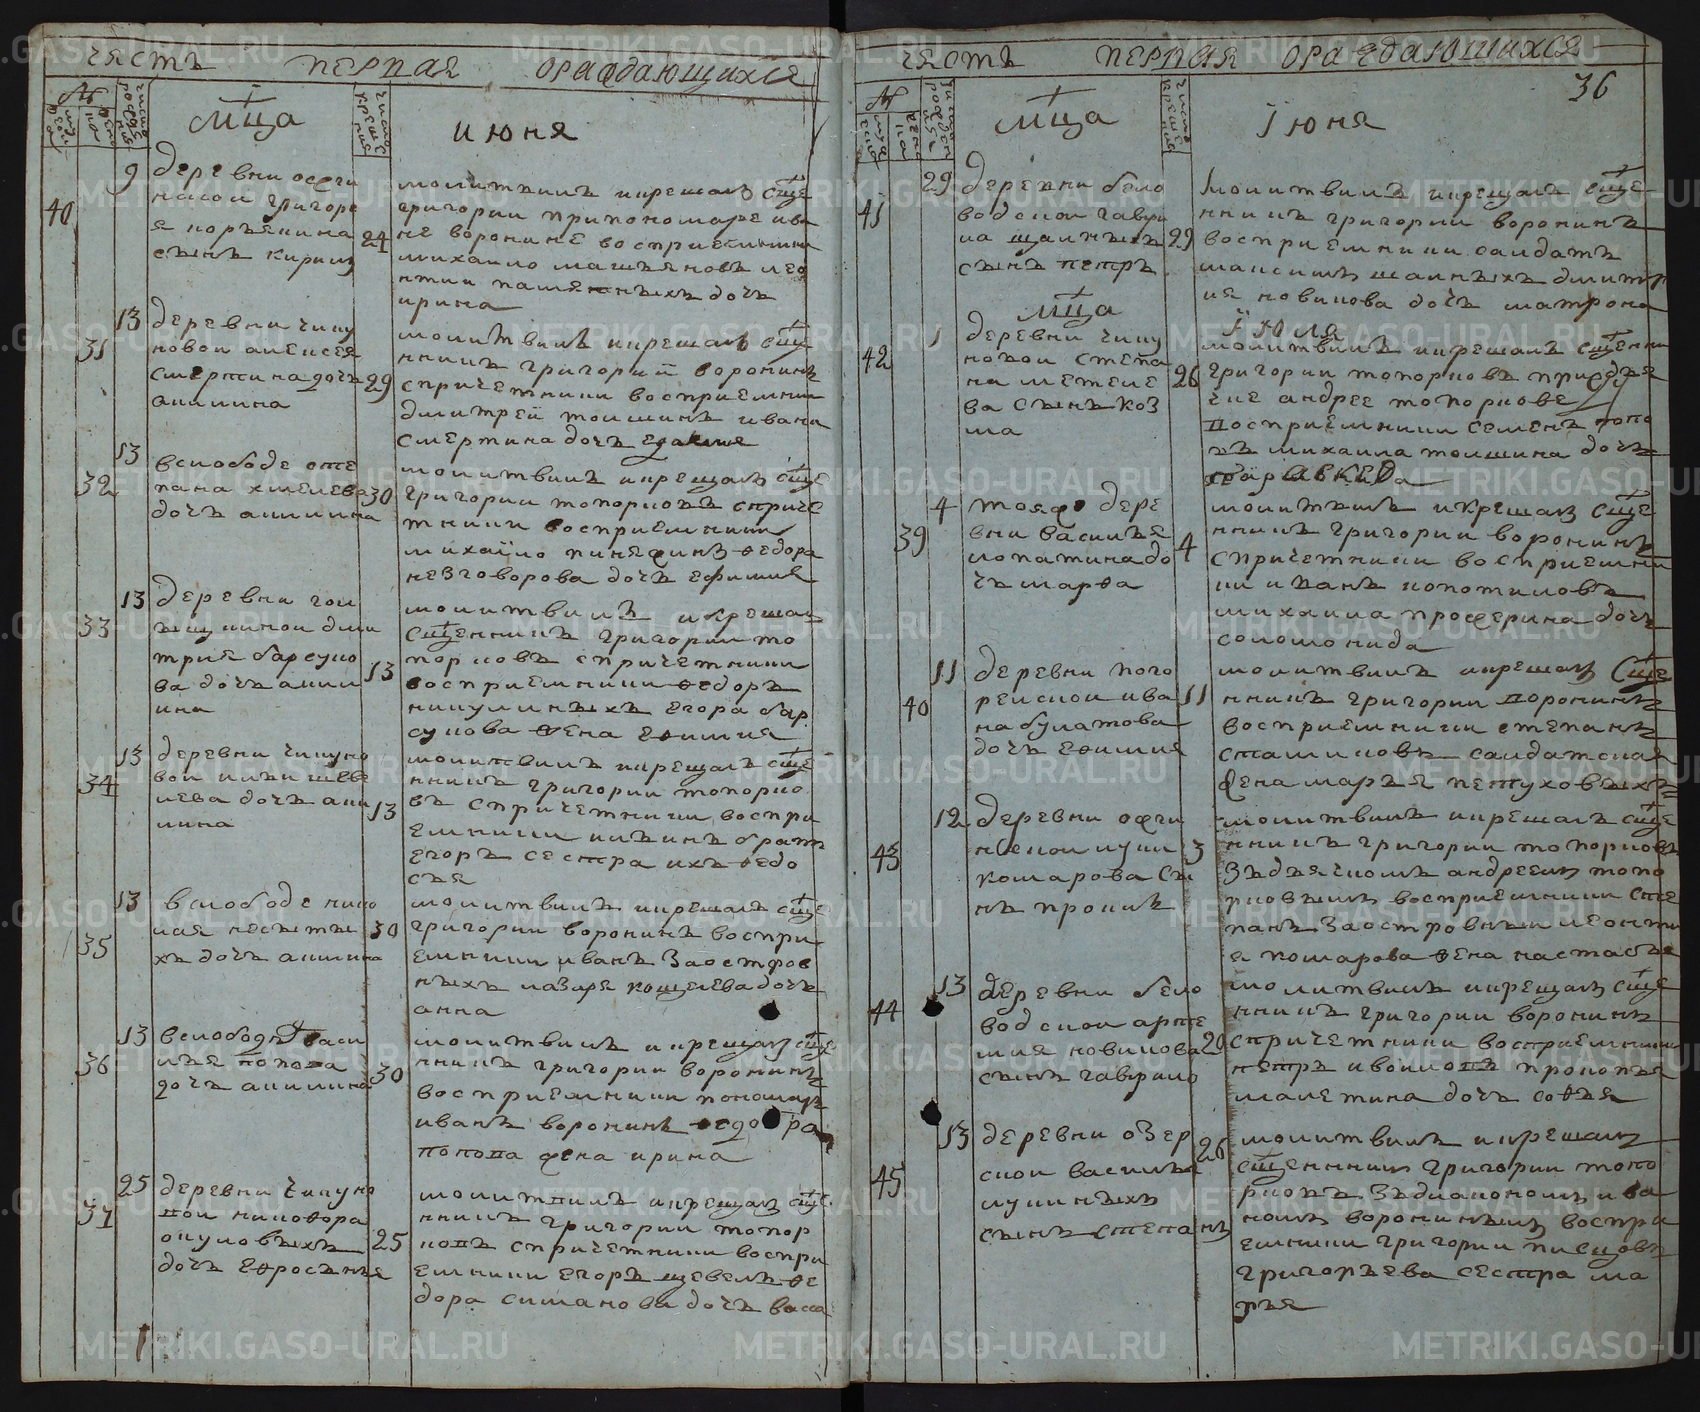 часть первая ораждающихся
мца
июня
40
9
деревни ожги
нсеои григоре
я коръякина
сынъ кирилъ
24
молитвилъ икрещалъ сще
григории припономаре ива
не воронине восприемники
михаило
дочь
ирина
31
13
деревни чипу
новои алексея
смертина дочь
акилина
29
молитвилъ икрещалъ сще
нникъ григории воронинъ
спричетники восприемни
дмитреи токшинъ ивана
смертина дочь
32
13
вслободе сте
пана хмелева
дочь акилина
30
молитвилъ икрещалъ сще
григории топорковъ сприче
тники восприемники
михаило пинежинъ федора
незговорова дочь ефимия
33
13
деревни гол
ышкинои дми
трия барсуко
ва дочь акил
ина
13
молитвилъ икрещалъ
сщенникъ григории то
порковъ спричетники
восприемники федоръ
никулиныхъ егора бар
сукова жена ефимия
34
13
деревни чипуно
вои илии шеве
лева дочь аки
лина
13
молитвилъ икрещалъ сще
нникъ григории топорко
въ спричетники воспри
емники ильинъ братъ
егоръ сестра ихъ федо
сья
35
13
вслободе нико
лая несыты
хъ дочь акилина
30
молитвилъ икрещалъ сще
григории воронинъ воспри
емники иванъ заостров
ныхъ лазаря кощелева дочь
анна
36
13
вслободе васи
лья попова
дочь акилина
30
молитвилъ икрещалъ сще
нникъ григории воронинъ
восприемники пономарь
иванъ воронинъ федора
попова жена ирина
37
25
деревни чипуно
вои никифора
окуловыхъ
дочь ефросинья
25
молитвилъ икрещалъ сще
нникъ григории топор
ковъ спричетники воспри
емники егоръ щевелевъ фе
дора симанова дочь васса
часть первая ораждающихся
36
мца
іюня
41
29
деревни бело
водскои гаври
ла щаиныхъ
сынъ петръ
29
молитвилъ икрещалъ сще
нникъ григории воронинъ
восприемники салдатъ
максимъ щаиныхъ дмитр
ия новикова дочь матрона
мца
іюля
42
1
деревни чипу
новои степа
на метеле
ва сынъ коз
ма
26
молитвилъ икрещалъ сщенни
григории топорковъ придья
чке андрее топоркове
восприемники семенъ попо
въ михаила токшина дочь
39
4
тояже дере
вни василья
лопатина до
чь марфа
4
молитвилъ икрещалъ сще
нникъ григории воронинъ
спричетники восприемни
ки иванъ
михаила проферина дочь
соломонида
40
11
деревни пого
релскои ива
на булатова
дочь ефимия
11
молитвилъ икрещалъ сще
нникъ григории воронинъ
восприемники степанъ
сташковъ салдатская
жена марья петуховыхъ
43
12
деревни ожги
нсекои луки
комарова сы
нъ прокиъ
3
молитвилъ икрещалъ сще
нникъ григории топорковъ
здьячкомъ андреемъ топо
рковымъ восприемники сте
панъ заостровныи леонти
я комарова жена настасья
44
13
деревни бело
водскои арте
мия новикова
сынъ гаврило
20
молитвилъ икрещалъ сще
нникъ григории воронинъ
спричетники восприемники
петръ ивоиловъ прокопья
малетина дочь софья
45
13
деревни озер
скои василья
лукиныхъ
сынъ степанъ
26
молитвилъ икрещалъ
сщенникъ григории топо
рковъ здиакономъ ива
номъ воронинымъ воспри
емники григории писцовъ
григорьева сестра ма
рья